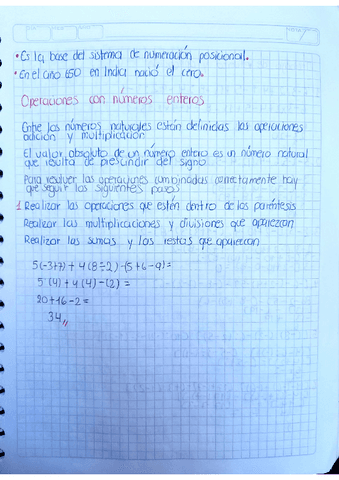 • Es la base del sistema de numeración posicional.
• En el año 650 en India nació el cero.
Operaciones con números enteros
Entre los números naturales están definidas las operaciones
adición y multiplicación
El valor absoluto de un número entero es un número natural
que resulta de prescindir del signo
Para resolver las operaciones combinadas correctamente hay
que seguir los siguientes pasos
1 Realizar las operaciones que estén dentro de los paréntesis
Realizar las multiplicaciones y divisiones que aparezcan
Realizar las sumas y las restas que aparezcan
5(-3+7) + 4(8÷2) - (5+6-9) =
5 (4) + 4 (4) - (2) =
20 + 16 - 2 =
34 //